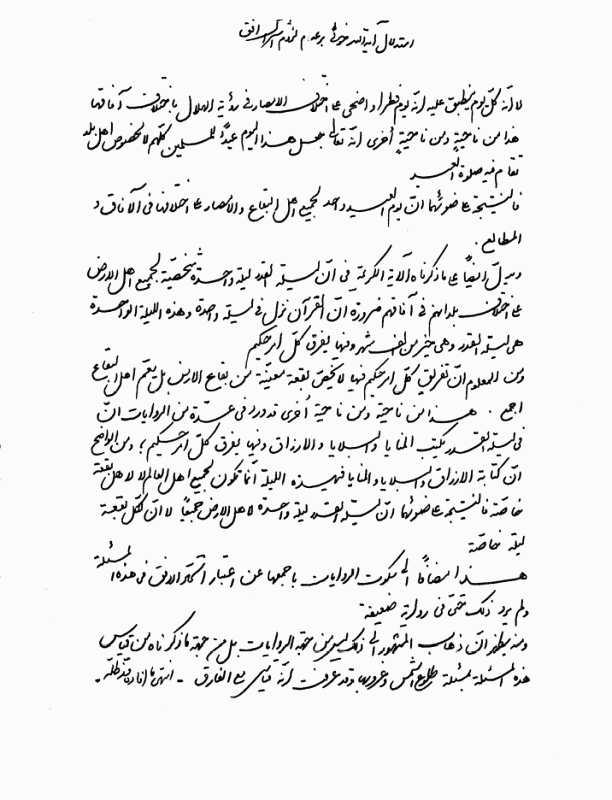 استدلال آیة الله خوئی بر عدم لزوم اشتراک افق
لا أنّه كلّ يوم ينطبق عليه أنّه يوم فطر او اضحى على اختلاف الامصار في رؤية الهلال باختلاف آفاقها
هذا من ناحيةٍ ومن ناحيةٍ أخرى أنّه تعالى جعل هذا اليوم عيداً للمسلمين كلّهم لا لخصوص اهل بلد
تقام فيه صلوة العيد
فالنتيجة على ضوئهما انّ يوم العيد يوم واحد لجميع اهل البقاع والامصار على اختلافها في الآفاق و
المطالع .
ويدلّ ايضاً على ما ذكرناه الآية الكريمة في انّ ليلة القدر ليلة واحدة شخصيّة لجميع اهل الارض
على اختلاف بلدانهم في آفاقهم ضرورة انّ القرآن نزل في ليلة واحدة وهذه الليلة الواحدة
هي ليلة القدر وهي خير من الف شهر وفيها يفرق كلّ امر حكيم
ومن المعلوم انّ تفريق كلّ امر حكيم فيها لا يخصّ بقعة معيّنة من بقاع الارض بل يعمّ اهل البقاع
اجمع . هذا من ناحية ومن ناحية أخرى قد ورد في عدّة من الروايات انّ
في ليلة القدر يكتب المنايا والبلايا والارزاق وفيها يفرق كلّ امر حكيم ؛ ومن الواضح
انّ كتابة الارزاق والبلايا والمنايا في هذه الليلة انّما تكون لجميع اهل العالم لا لاهل بقعة
خاصّة فالنتيجة على ضوئهما انّ ليلة القدر ليلة واحدة لاهل الارض جميعاً لا انّ لكلّ بقعة
ليلة خاصّة
هذا مضافاً الى سكوت الروايات باجمعها عن اعتبار اتحاد الافق في هذه المسئلة
ولم يرد ذلك حتّى في رواية ضعيفة
ومنه يظهر انّ ذهاب المشهور الى ذلك ليس من جهة الروايات بل من جهة ما ذكرناه من قياس
هذه المسئلة بمسئلة طلوع الشمس وغروبها وقد عرفت أنّه قياس مع الفارق - انتهى ما افاده مدّ ظلّه .